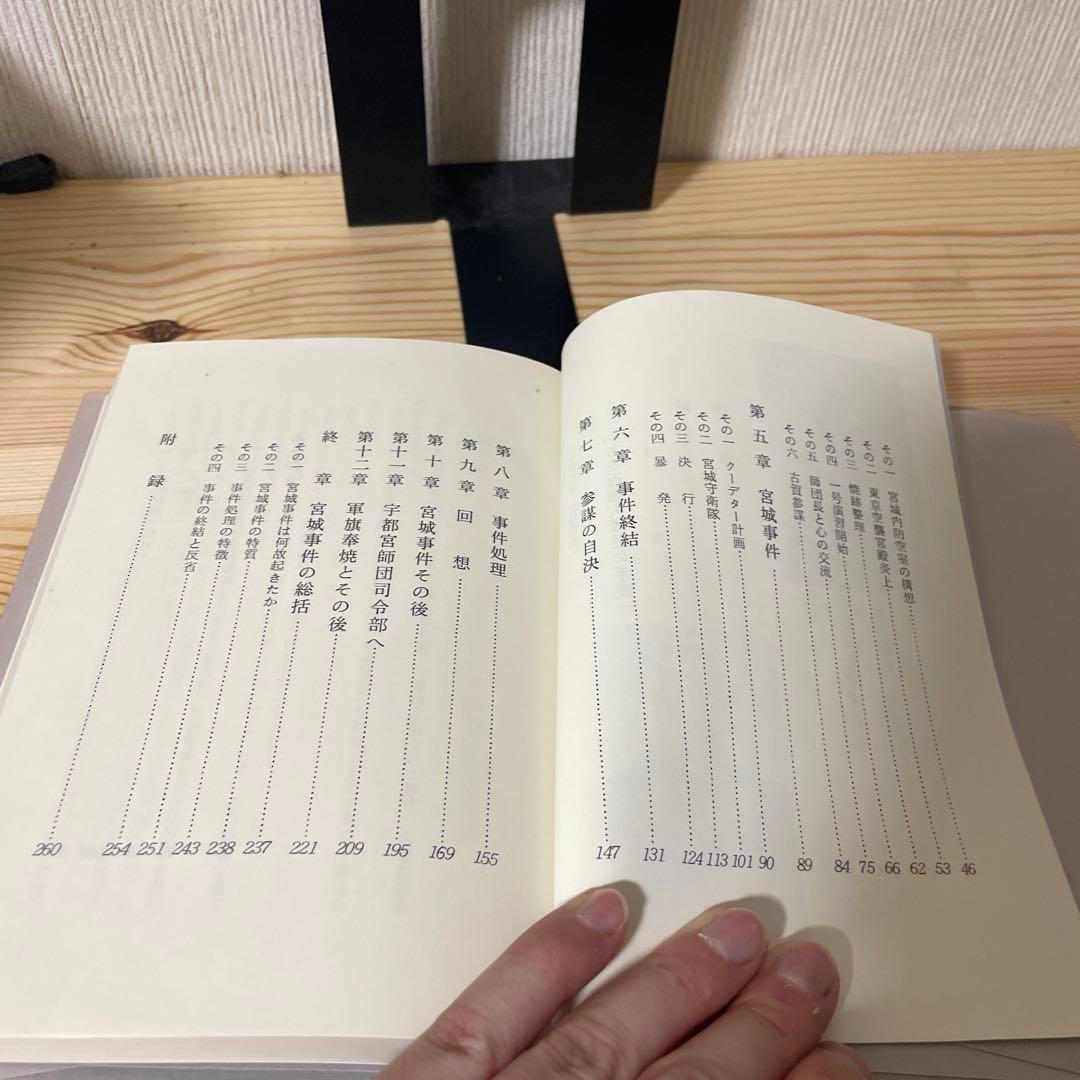 その一 宮城内防空室の構想……46
その二 東京空襲宮殿炎上……53
その三 焼跡整理……62
その四 一号演習開始……66
その五 師団長と心の交流……75
その六 古賀参謀……84
第五章 宮城事件……89
その一 クーデター計画……90
その二 宮城守衛隊……101
その三 決行……113
その四 暴発……124
第六章 事件終結……131
第七章 参謀の自決……147
第八章 事件処理……155
第九章 回想……169
第十章 宮城事件その後……195
第十一章 宇都宮師団司令部へ……209
第十二章 軍旗奉焼とその後……221
終章 宮城事件の総括……237
その一 宮城事件は何故起きたか……238
その二 宮城事件の特質……243
その三 事件処理の特徴……251
その四 事件の終結と反省……254
附録……260